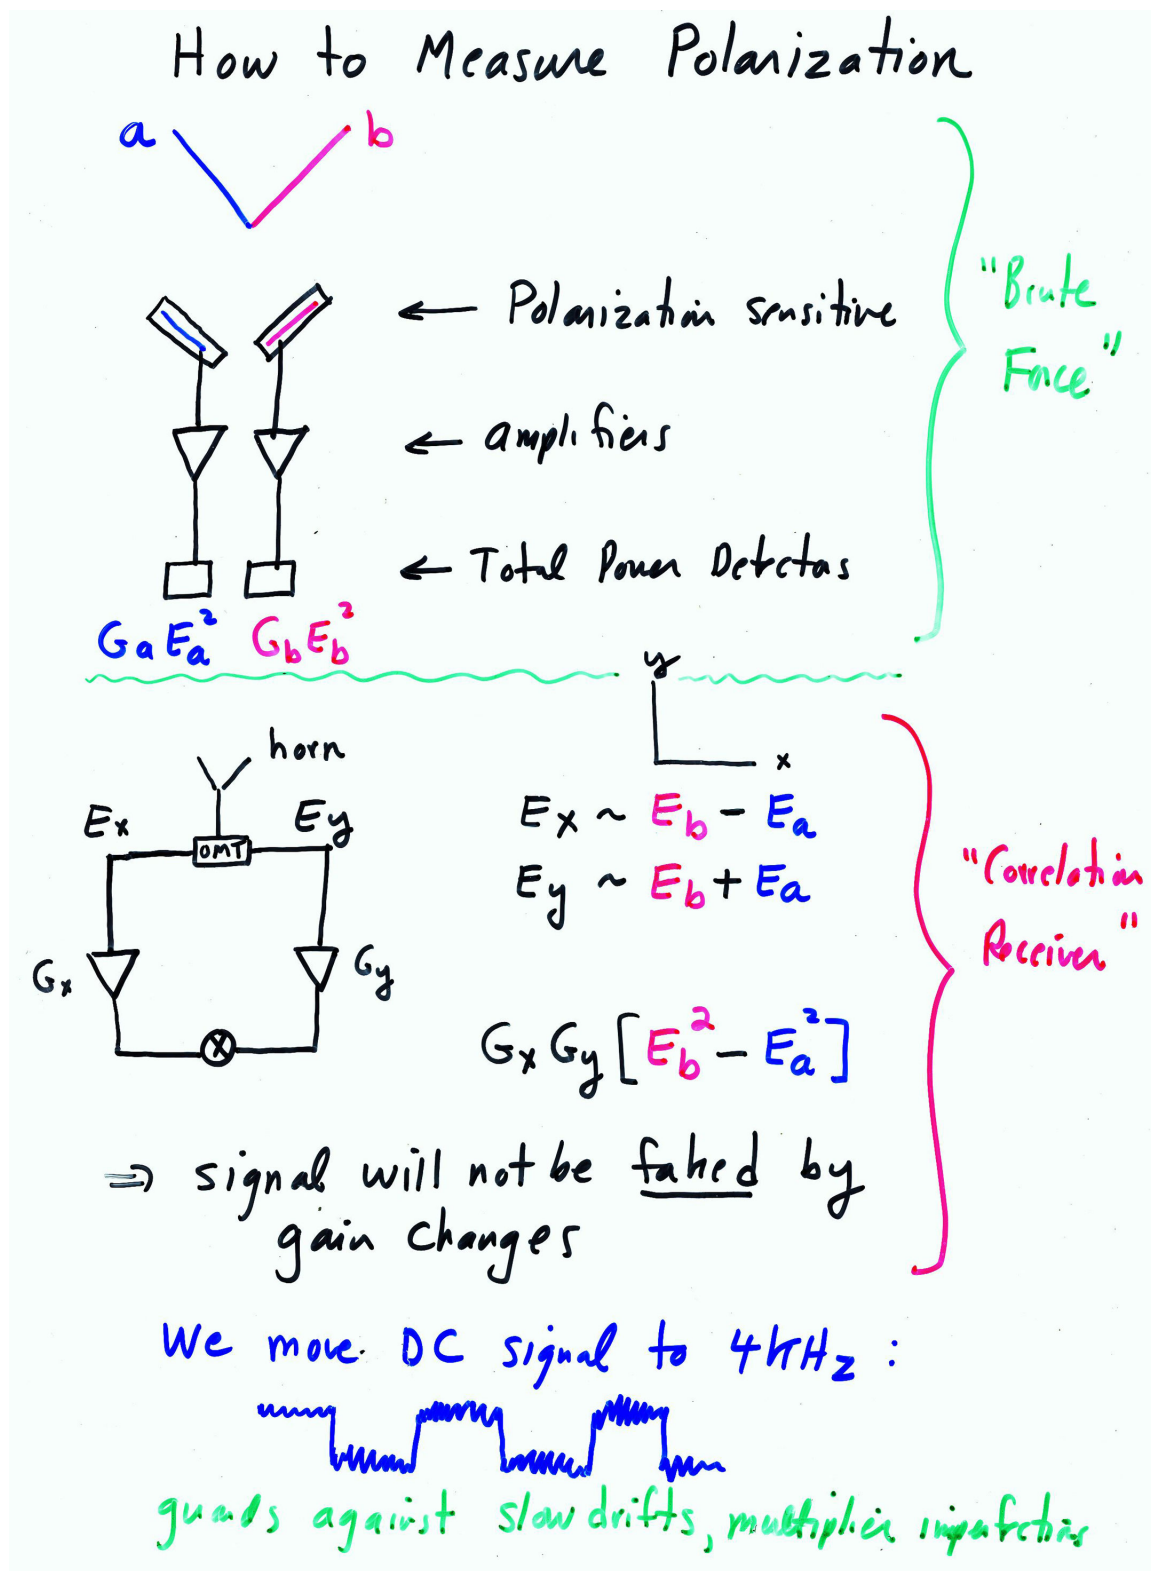 How to Measure Polarization
a b
← Polarization sensitive
← amplifiers
← Total Power Detectors
GaEa² GbEb²
"Brute
Force"
y
x
horn
Ex Ey
OMT
Gx Gy
Ex ~ Eb - Ea
Ey ~ Eb + Ea
GxGy[Eb² - Ea²]
"Correlation
Receiver"
⇒ signal will not be faked by
gain changes
We move DC signal to 4 kHz :
guards against slow drifts, multiplier imperfections